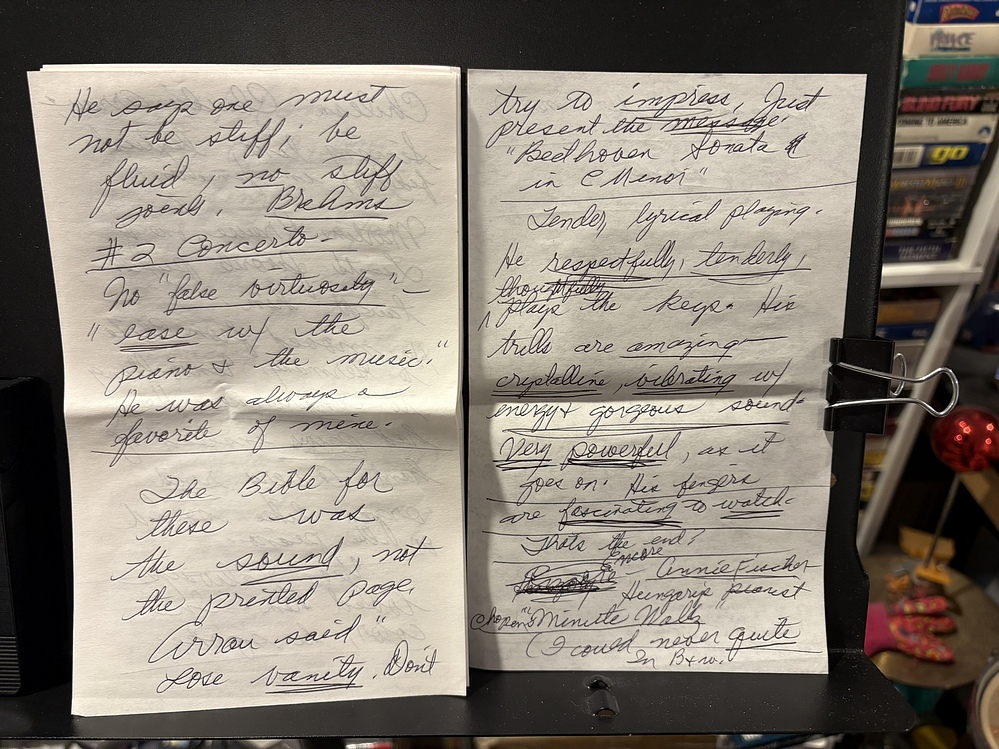 He says one must
not be stiff; be
fluid, no stiff
joints. Brahms
#2 Concerto-
No "false virtuosity"-
"ease w/ the
piano & the music."
He was always a
favorite of mine.
The Bible for
these was
the sound, not
the printed page.
Arrau said "
Lose vanity. Don't
try to impress. Just
present the message.
"Beethoven Sonata
in C Menor"
Tender, lyrical playing.
He respectfully, tenderly,
thoughtfully
plays the keys. His
trills are amazing-
crystalline, vibrating w/
energy & gorgeous sound-
Very powerful, as it
goes on. His fingers
are fascinating to watch-
Thats the end?
Encore
Annie Fischer
Hungerip pianist
Chopen's "Minute Waltz
(I could never quite
In B&W.
PRINCE
BLIND FURY
COMING TO AMERICA
go